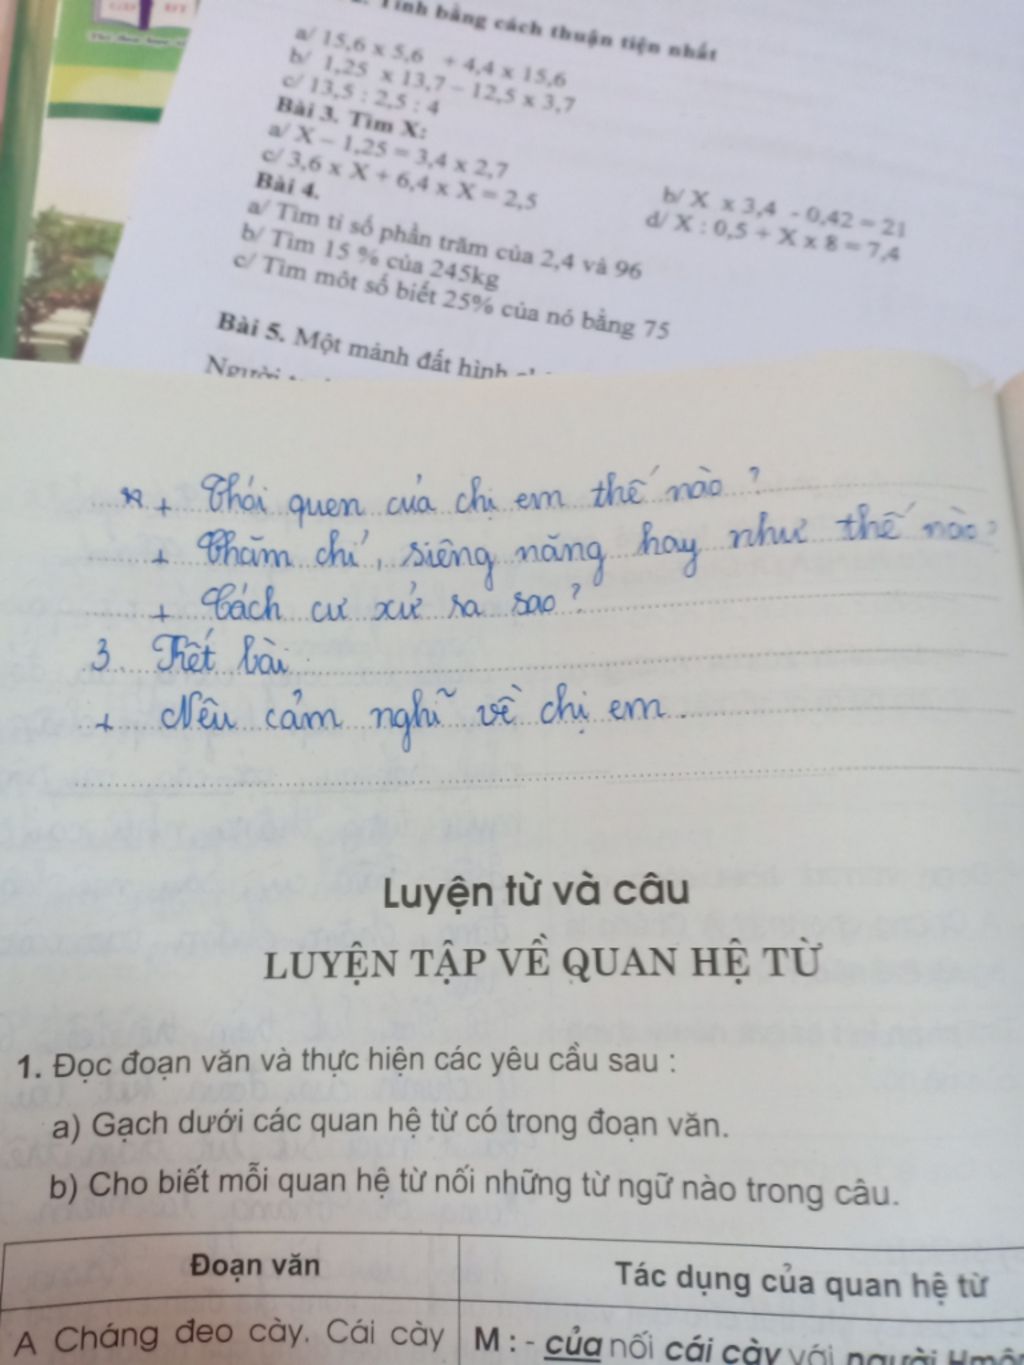 Tính bằng cách thuận tiện nhất
a/ 15,6 x 5,6 + 4,4 x 15,6
b/ 1,25 x 13,7 – 12,5 x 3,7
c/ 13,5 : 2,5 : 4
Bài 3. Tìm X:
a/ X – 1,25 = 3,4 x 2,7
b/ X x 3,4 - 0,42 = 21
c/ 3,6 x X + 6,4 x X = 2,5
d/ X : 0,5 + X x 8 = 7,4
Bài 4.
a/ Tìm tỉ số phần trăm của 2,4 và 96
b/ Tìm 15 % của 245kg
c/ Tìm môt số biết 25% của nó bằng 75
Bài 5. Một mảnh đất hình
Người
+ Thói quen của chị em thế nào ?
+ Chăm chỉ, siêng năng hay như thế nào ?
+ Cách cư xử ra sao ?
3. Kết bài
+ Nêu cảm nghĩ về chị em.
Luyện từ và câu
LUYỆN TẬP VỀ QUAN HỆ TỪ
1. Đọc đoạn văn và thực hiện các yêu cầu sau :
a) Gạch dưới các quan hệ từ có trong đoạn văn.
b) Cho biết mỗi quan hệ từ nối những từ ngữ nào trong câu.
Đoạn văn
Tác dụng của quan hệ từ
A Cháng đeo cày. Cái cày
M : - của nối cái cày với người Hmông